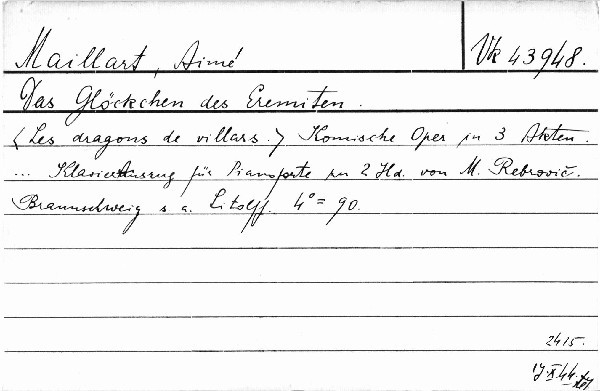 Maillart, Aimé
Vk 43948.
Das Glöckchen des Eremiten.
<Les dragons de villars.> Komische Oper in 3 Akten.
... Klavier Auszug für Pianoforte zu 2 Hd. von M. Rebrovič.
Braunschweig s. a. Litolff. 4° = 90.
2415.
X. 44.